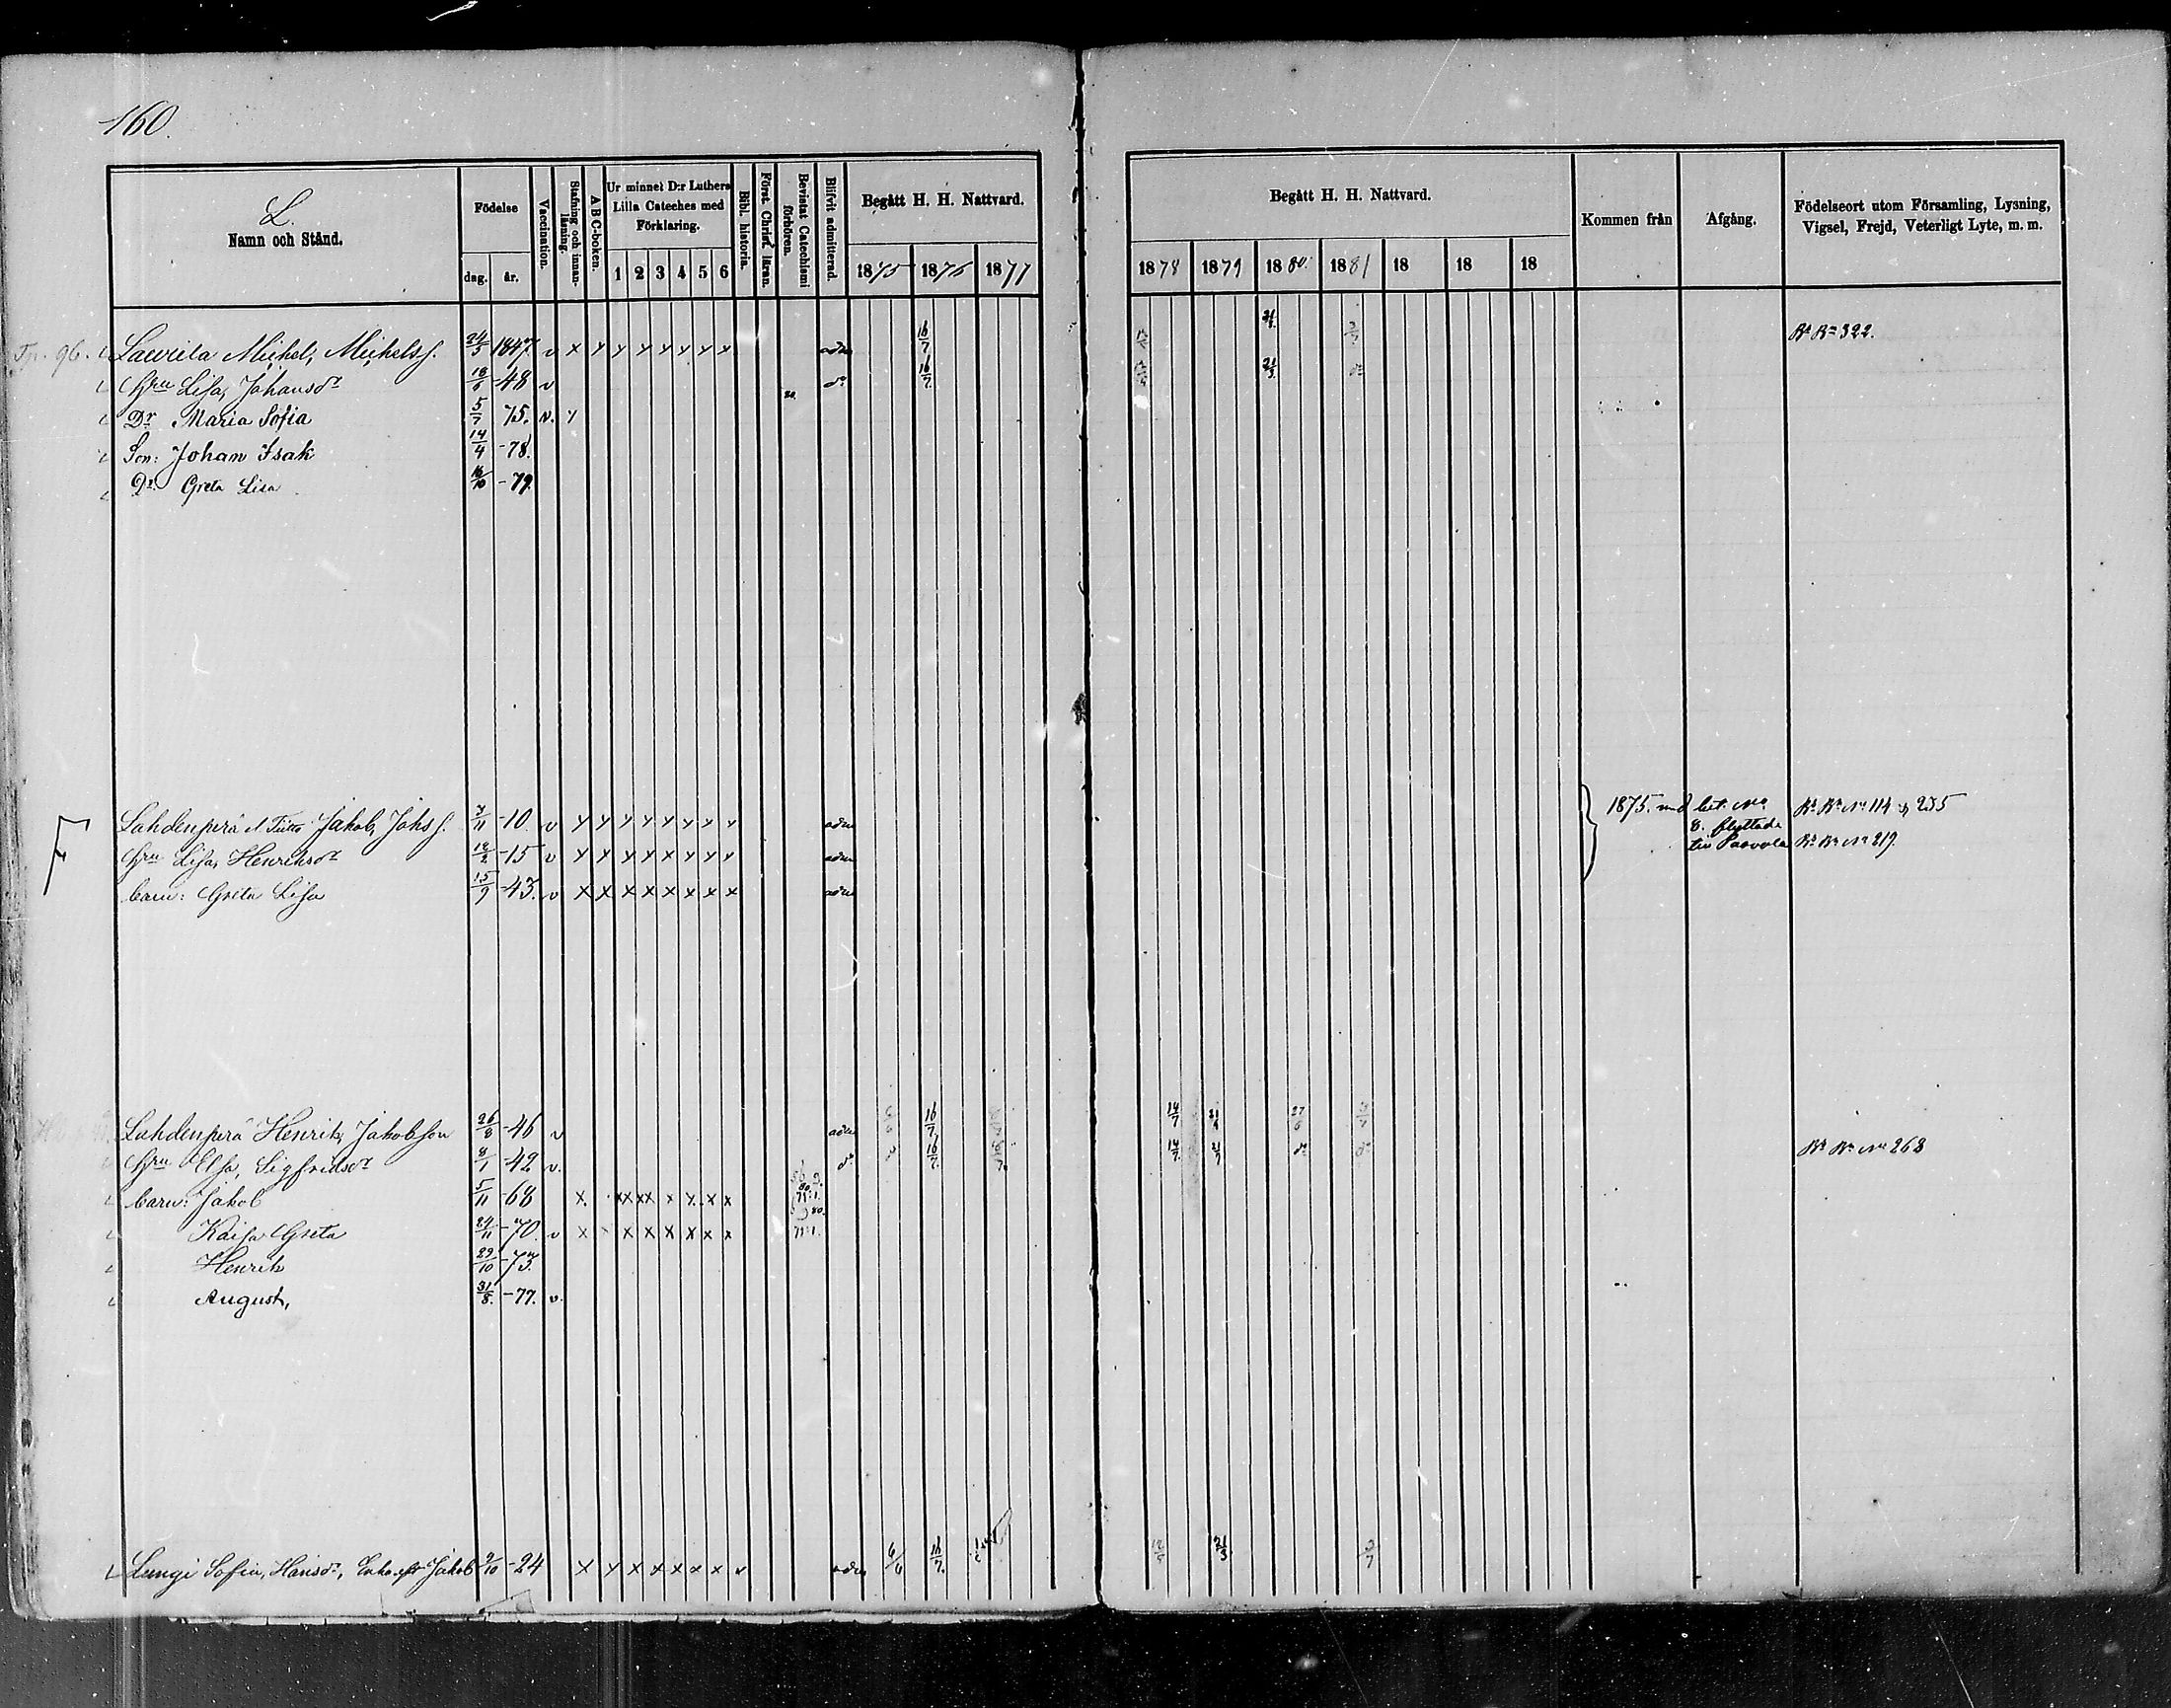 160.
L.
Namn och Stånd.
Födelse
dag. år.
Vaccination.
Stafning och innanläsning.
A B C-boken.
Ur minnet D:r Luthers Lilla Cateches med Förklaring.
1 2 3 4 5 6
Bibl. historia.
Först. Christ. läran.
Bevistat Catechismi förhören.
Blifvit admitterad.
Begått H. H. Nattvard.
1875 1876 1877
Begått H. H. Nattvard.
1878 1879 1880. 1881 18 18 18
Kommen från
Afgång.
Födelseort utom Församling, Lysning, Vigsel, Frejd, Veterligt Lyte, m. m.
Michel, Michelss. 24/5 1847. v x y y y y y y x adm 16/7 21/3 322.
Hru Lisa, Johansdr 18/6 -48 v do 16/7. 21/3. do
Dr Maria Sofia 5/7 75. v. y
Son: Johan Isak 14/4 -78.
Dr. Greta Lisa 16/10 -79.
F
Lahdenperä Jakob, Johss. 7/11 -10. v y y y y y y y y adm 1875. med bet. No 8. flyttade till Paavola No 114 & 255
Hru Lisa, Henriksdr 18/2 -15 v y x y y x y y y adm No 219.
barn: Greta Lisa 15/9 -43. v x x x x x x x x adm
Lahdenperä Henrik, Jakobson 26/8 -46 v adm 16/7 14/7 27/6 3/7
Hru Elsa, Sigfridsdr 8/1 -42 v. do 16/7. 14/7. do do No 268
barn: Jakob 5/11 -68 x. xx xx x x x x
Kaisa Greta 24/11 -70. v x x x x x x x
Henrik 29/10 -73.
August, 31/8. -77. v.
Sofia, Hansdr, Enka eft Jakob 2/10 -24 x y x x x x x v adm 6/6 16/7. 21/3 3/7